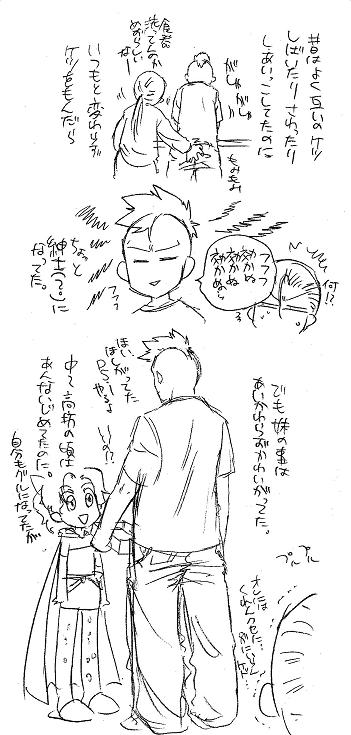 昔はよく互いのケツ
しばいたりさわったり
しあいっこしてたのに
ガシャ
ガシャ
食器
洗ってんの
めずらしい
ない
いつもと変わらず
ケツをもんだら
もみもみ
フフフ
効かぬ
効かぬ
効かぬわ
何!?
フフフ
ちょっと
紳士(?)に
なってた。
でも妹の事は
あいかわらずかわいがってた。
ほい、
ほしがってた
やるよ
いいの!?
中〜高坊の頃は
あんないじめてたのに。
自分もグルになってたが
プルプル
オレには
くれんクセに…